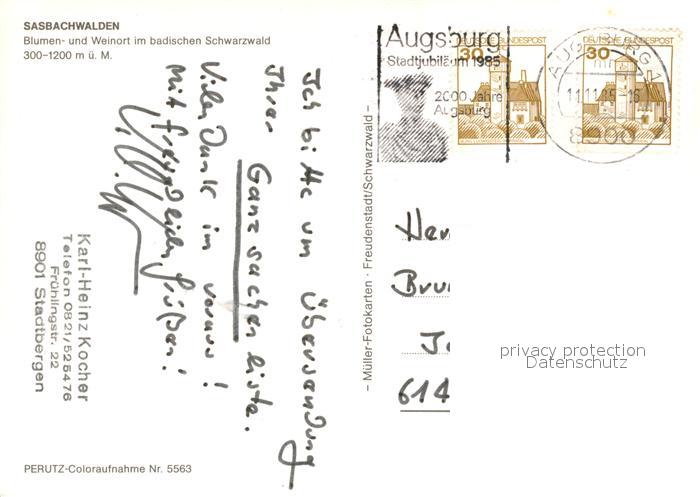 SASBACHWALDEN
Blumen- und Weinort im badischen Schwarzwald
300–1200 m ü. M.
Ich bitte um Übersendung
Ihrer Ganzsachenliste.
Vielen Dank im voraus!
Mit freundlichen Grüßen!
Karl-Heinz Kocher
Telefon 0821/525476
Frühlingstr. 22
8901 Stadtbergen
PERUTZ-Coloraufnahme Nr. 5563
– Müller-Fotokarten · Freudenstadt/Schwarzwald –
Augsburg
Stadtjubiläum 1985
2000 Jahre
Augsburg
DEUTSCHE BUNDESPOST
30
DEUTSCHE BUNDESPOST
30
AUGSBURG 1
mn
11.11.85-16
8900
Her
Bru
J
614
privacy protection
Datenschutz